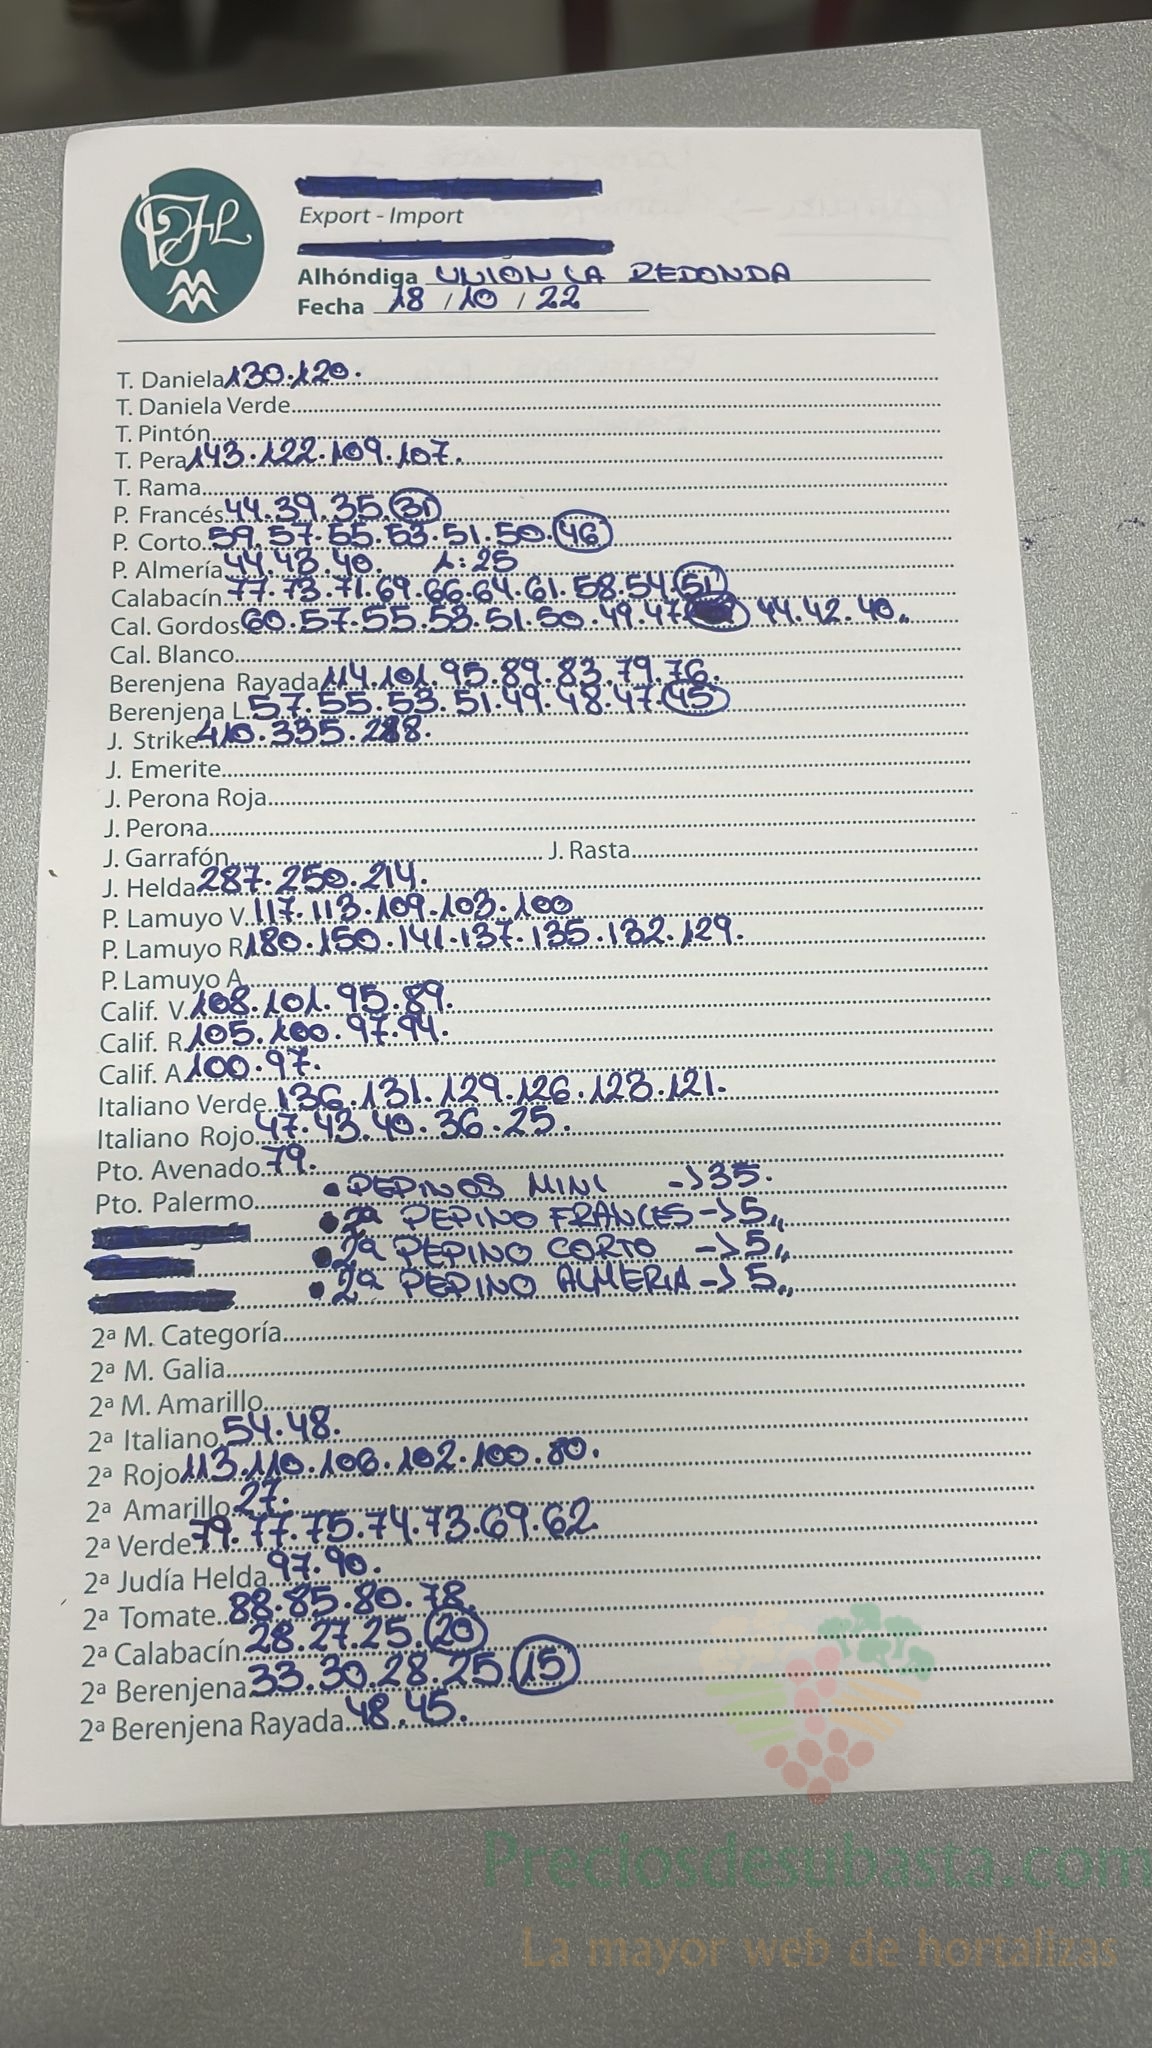 JL
Export - Import
Alhóndiga UNION LA REDONDA
Fecha 18 / 10 / 22
T. Daniela 130.120.
T. Daniela Verde
T. Pintón
T. Pera 143.122.109.107.
T. Rama
P. Francés 44.39.35.31
P. Corto 59.57.55.53.51.50.46
P. Almería 44.43.40. L:25
Calabacín 77.73.71.69.66.64.61.58.54.51
Cal. Gordos 60.57.55.53.51.50.49.47. 44.42.40.
Cal. Blanco
Berenjena Rayada 114.101.95.89.83.79.76.
Berenjena L. 57.55.53.51.49.48.47.45
J. Strike 410.335.288.
J. Emerite
J. Perona Roja
J. Perona
J. Garrafón J. Rasta
J. Helda 287.250.214.
P. Lamuyo V. 117.113.109.103.100
P. Lamuyo R. 180.150.141.137.135.132.129.
P. Lamuyo A.
Calif. V. 108.101.95.89.
Calif. R. 105.100.97.94.
Calif. A. 100.97.
Italiano Verde 136.131.129.126.123.121.
Italiano Rojo 47.43.40.36.25.
Pto. Avenado 79.
Pto. Palermo • PEPINOS MINI -> 35.
• 2ª PEPINO FRANCES -> 5,,
• 2ª PEPINO CORTO -> 5,,
• 2ª PEPINO ALMERIA -> 5,,
2ª M. Categoría
2ª M. Galia
2ª M. Amarillo
2ª Italiano 54.48.
2ª Rojo 113.110.106.102.100.80.
2ª Amarillo 27.
2ª Verde 79.77.75.74.73.69.62
2ª Judía Helda 97.90.
2ª Tomate 88.85.80.78.
2ª Calabacín 28.27.25.20
2ª Berenjena 33.30.28.25 15
2ª Berenjena Rayada 48.45.
Preciosdesubasta.com
La mayor web de hortalizas